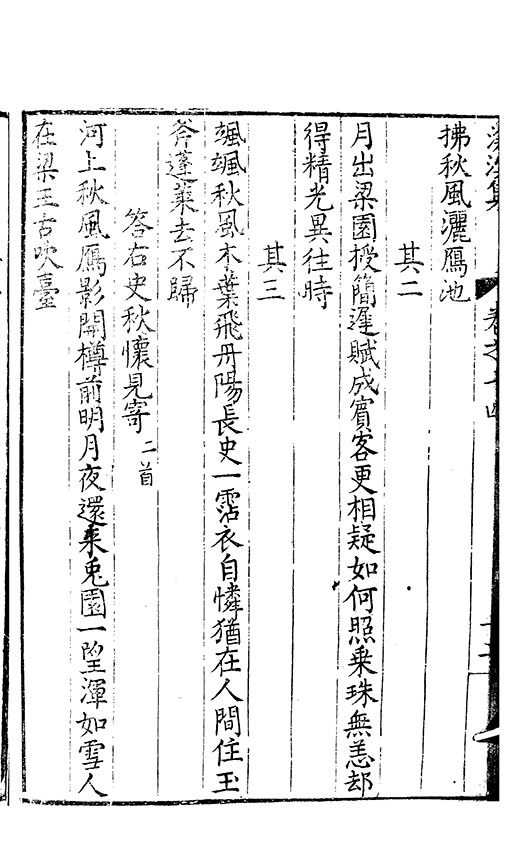 滄溟集 卷之十四
拂秋風灑鴈池
其二
月出梁園授簡遲賦成賓客更相疑如何照乗珠無恙却
得精光異往時
其三
颯颯秋風木葉飛丹陽長史一霑衣自憐猶在人間住玉
斧蓬萊去不歸
答右史秋懷見寄二首
河上秋風鴈影開樽前明月夜還来兔園一望渾如雪人
在梁王古吹臺